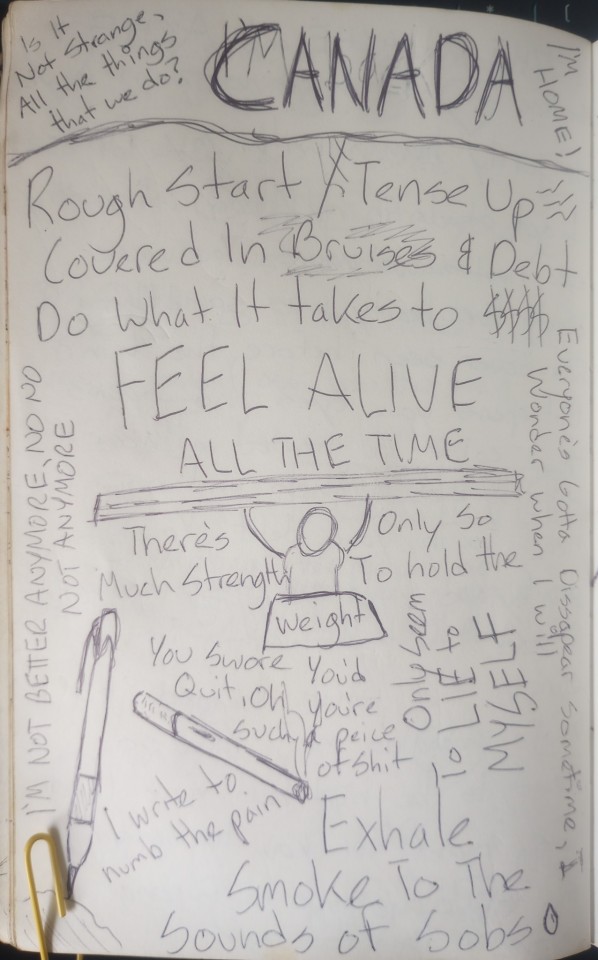 Is It
Not Strange,
All the things
that we do?
CANADA
I'M HOME!
Rough Start / Tense Up
Covered In Bruises & Debt
Do What It takes to $$$$
FEEL ALIVE
ALL THE TIME
There's Only So
Much Strength To hold the
weight
I'M NOT BETTER ANYMORE, NO NO
NOT ANYMORE
Everyone's Gotta Dissapear Sometime, I
Wonder when I will
You Swore You'd
Quit, Oh you're
such a peice
of shit
Only seem
to LIE to
MYSELF
I write to
numb the pain
Exhale
Smoke To The
Sounds of Sobs